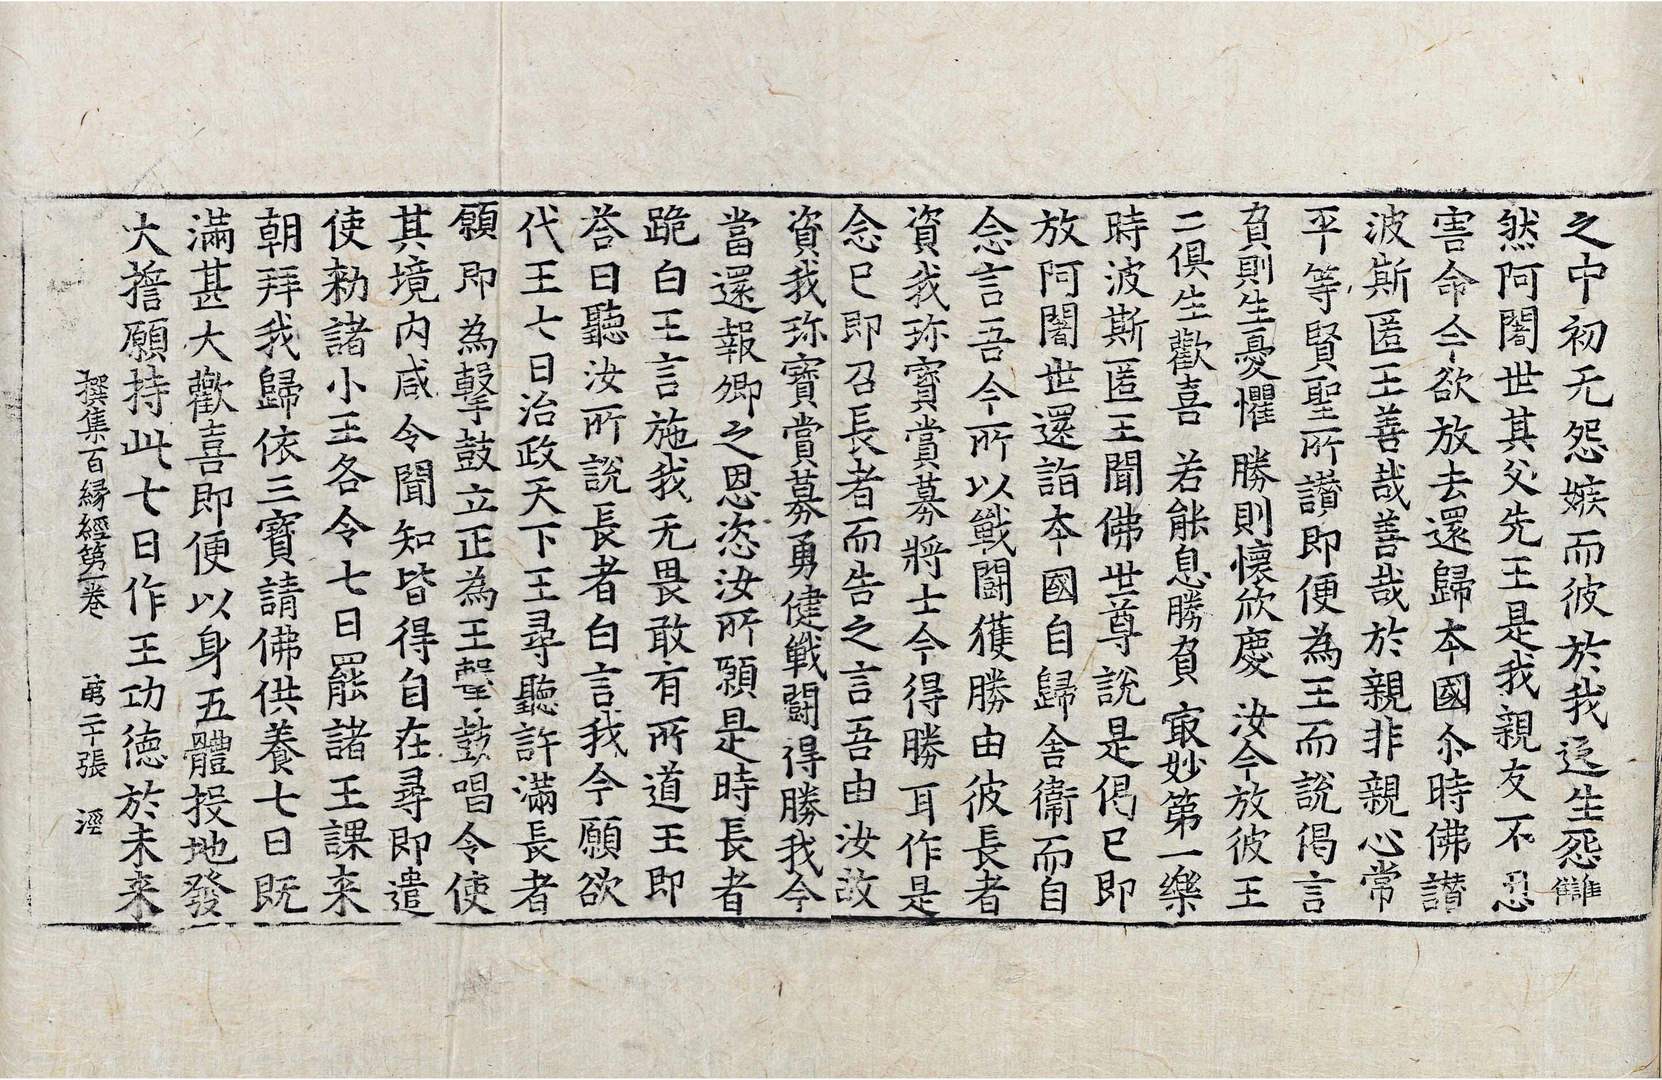 之中初无怨嫉而彼於我返生怨讎
然阿闍世其父先王是我親友不忍
害命今欲放去還歸本國尒時佛讃
波斯匿王善哉善哉於親非親心常
平等賢聖所讃即便為王而說偈言
負則生憂懼 勝則懷欣慶 汝今放彼王
二俱生歡喜 若能息勝負 㝡妙第一樂
時波斯匿王聞佛世尊說是偈已即
放阿闍世還詣本國自歸舍衛而自
念言吾今所以戰鬪獲勝由彼長者
資我珎寶賞募將士今得勝耳作是
念已即召長者而告之言吾由汝故
資我珎寶賞募勇健戰鬪得勝我今
當還報卿之恩恣汝所願是時長者
跪白王言施我无畏敢有所道王即
荅曰聽汝所說長者白言我今願欲
代王七日治政天下王尋聽許滿長者
願即為擊鼓立正為王聲鼓唱令使
其境内咸令聞知皆得自在尋即遣
使勑諸小王各令七日罷諸王課来
朝拜我歸依三寶請佛供養七日既
滿甚大歡喜即便以身五體投地發
大擔願持此七日作王功徳於未来
撰集百縁經第一卷 苐二十張 溼